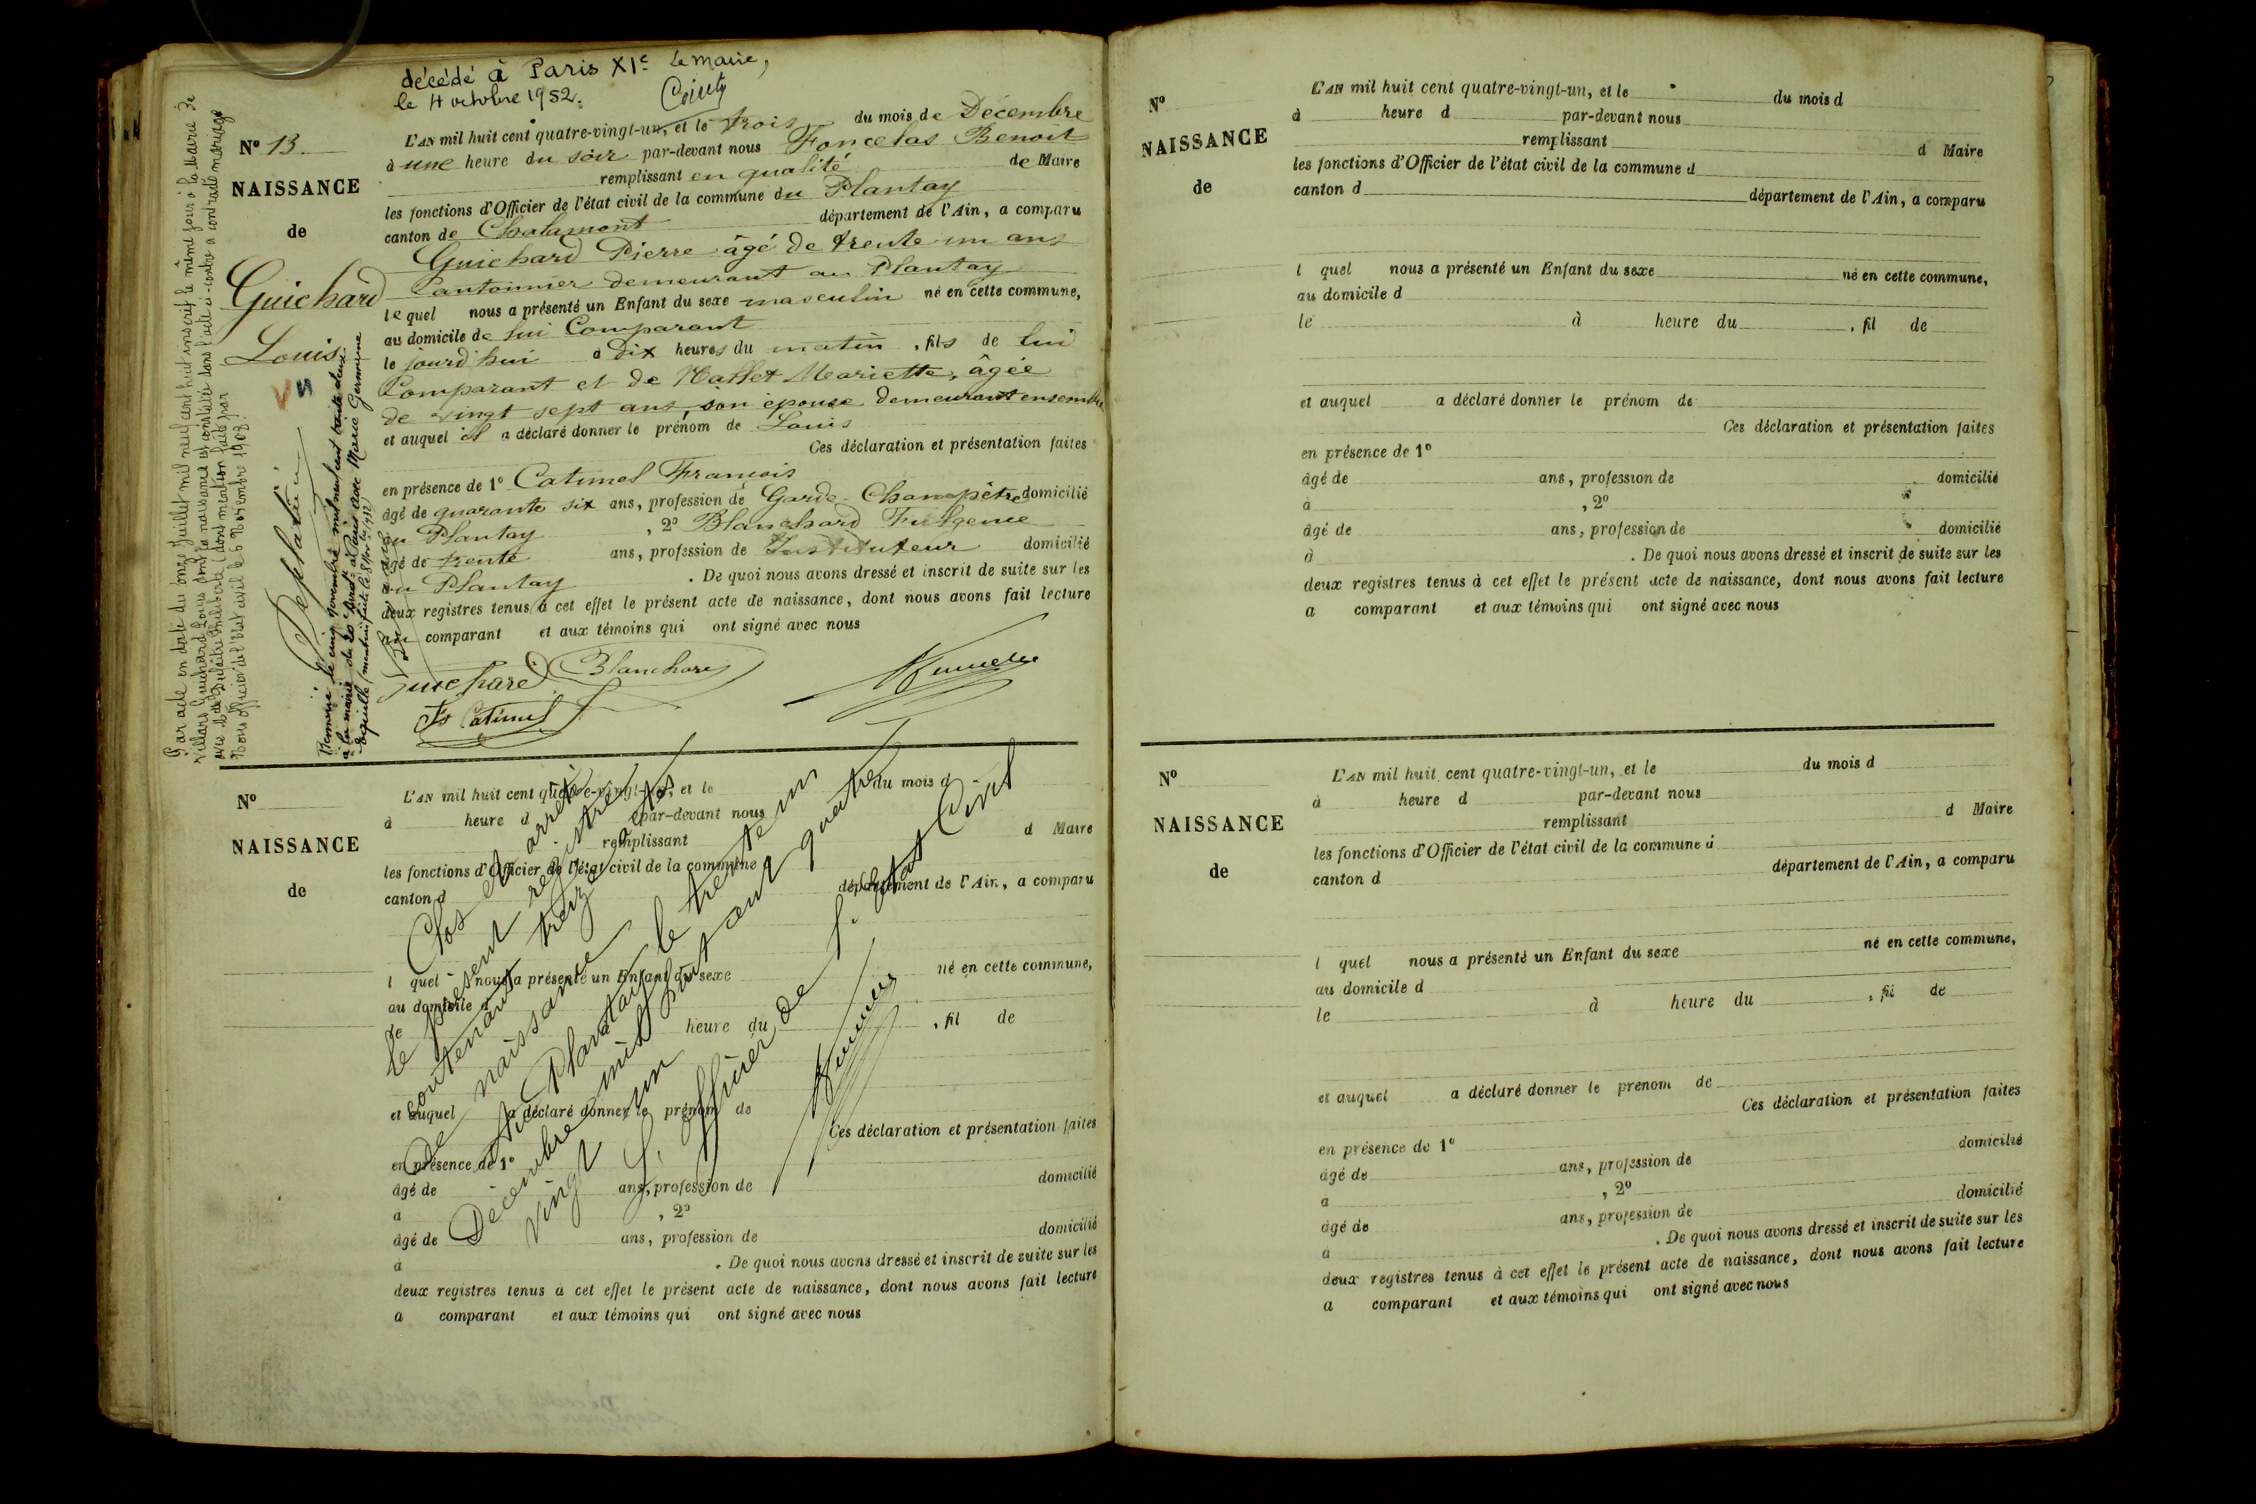 décédé à Paris XIe Le Maire,
le 4 octobre 1952.
Nº 13
NAISSANCE
de
Guichard
Louis
L'AN mil huit cent quatre-vingt-un, et le trois du mois de Décembre
à une heure du soir par-devant nous Benoit
remplissant en qualité de Maire
les fonctions d'Officier de l'état civil de la commune du Plantay
canton de Chalamont département de l'Ain, a comparu
Guichard Pierre âgé de trente un ans
Cantonnier demeurant au Plantay
lequel nous a présenté un Enfant du sexe masculin né en cette commune,
au domicile de lui Comparant
le jourd'hui à dix heures du matin, fils de lui
Comparant et de Mariette, âgée
de vingt sept ans, son épouse demeurant ensemble
et auquel il a déclaré donner le prénom de Louis
Ces déclaration et présentation faites
en présence de 1º Catimel François
âgé de quarante six ans, profession de Garde-Champêtre domicilié
au Plantay, 2º Blanchard Fulgence
âgé de trente ans, profession de Instituteur domicilié
au Plantay. De quoi nous avons dressé et inscrit de suite sur les
deux registres tenus à cet effet le présent acte de naissance, dont nous avons fait lecture
au comparant et aux témoins qui ont signé avec nous
Guichard Blanchard
Fs Catimel
Par acte en date du onze Juillet mil neuf cent huit inscrit le même jour à la Mairie de
Villars Guichard Louis dont la naissance est constatée dans l'acte ci-contre a contracté mariage
avec Philiberte (dont mention faite par
Nous officier de l'Etat civil le 6 Novembre 1908.
Remarié le cinq novembre mil neuf cent trente deux
à la mairie du 20e Arrt de Paris avec Marie Germaine
Nº
NAISSANCE
de
L'AN mil huit cent quatre-vingt-un, et le du mois d
à heure d par-devant nous
remplissant d Maire
les fonctions d'Officier de l'état civil de la commune
canton d département de l'Ain, a comparu
l quel nous a présenté un Enfant du sexe né en cette commune,
au domicile d
le heure du , fil de
et auquel a déclaré donner le prénom de
Ces déclaration et présentation faites
en présence de 1º
âgé de ans, profession de domicilié
à , 2º
âgé de ans, profession de domicilié
à . De quoi nous avons dressé et inscrit de suite sur les
deux registres tenus à cet effet le présent acte de naissance, dont nous avons fait lecture
a comparant et aux témoins qui ont signé avec nous
Clos et arrêté
le présent registre
contenant treize actes
de naissance
au Plantay le trente un
Décembre mil huit cent quatre
vingt un
L'officier de l'état Civil
Nº
NAISSANCE
de
L'AN mil huit cent quatre-vingt-un, et le du mois d
à heure d par-devant nous
remplissant d Maire
les fonctions d'Officier de l'état civil de la commune d
canton d département de l'Ain, a comparu
l quel nous a présenté un Enfant du sexe né en cette commune,
au domicile d
le à heure du , fil de
et auquel a déclaré donner le prénom de
Ces déclaration et présentation faites
en présence de 1º
âgé de ans, profession de domicilié
à , 2º
âgé de ans, profession de domicilié
à . De quoi nous avons dressé et inscrit de suite sur les
deux registres tenus à cet effet le présent acte de naissance, dont nous avons fait lecture
a comparant et aux témoins qui ont signé avec nous
Nº
NAISSANCE
de
L'AN mil huit cent quatre-vingt-un, et le du mois d
à heure d par-devant nous
remplissant d Maire
les fonctions d'Officier de l'état civil de la commune d
canton d département de l'Ain, a comparu
l quel nous a présenté un Enfant du sexe né en cette commune,
au domicile d
le à heure du , fil de
et auquel a déclaré donner le prenom de
Ces déclaration et présentation faites
en présence de 1º
âgé de ans, profession de domicilié
a , 2º
âgé de ans, profession de domicilié
à . De quoi nous avons dressé et inscrit de suite sur les
deux registres tenus à cet effet le présent acte de naissance, dont nous avons fait lecture
a comparant et aux témoins qui ont signé avec nous